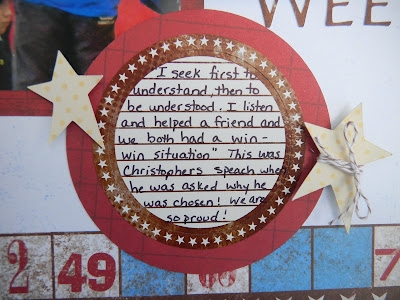 WEE
I seek first to
understand, then to
be understood. I listen
and helped a friend and
we both had a win-
win situation" This was
Christophers speach when
he was asked why he
was chosen! We are
so proud!
2 49 7